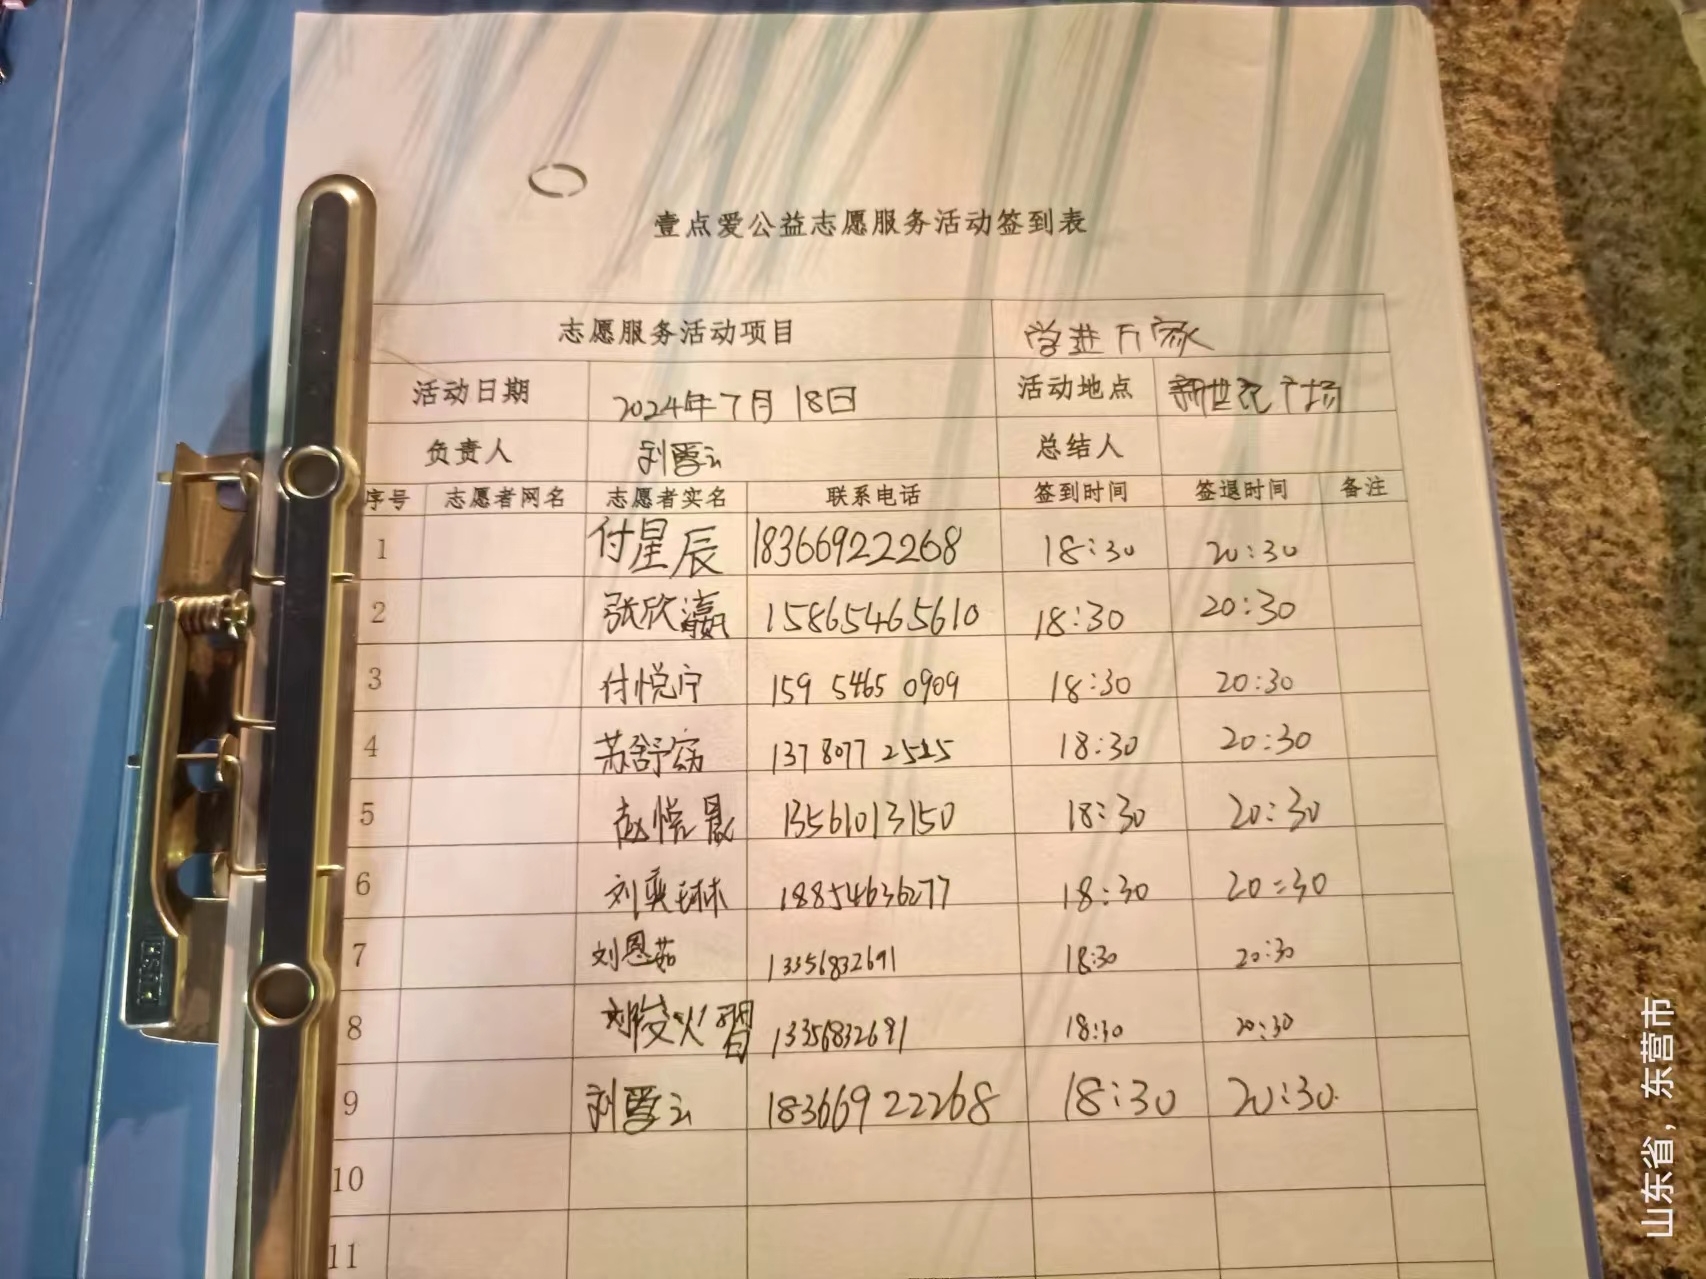 壹点爱公益志愿服务活动签到表
志愿服务活动项目 学进万家
活动日期 2024年7月18日 活动地点 新世纪广场
负责人 刘雪云 总结人
序号 志愿者网名 志愿者实名 联系电话 签到时间 签退时间 备注
1 付星辰 18366922268 18:30 20:30
2 张欣瀛 15865465610 18:30 20:30
3 付悦宁 159 5465 0909 18:30 20:30
4 苏舒 137 8077 2515 18:30 20:30
5 赵悦晟 13561013150 18:30 20:30
6 刘奕琳 18854636277 18:30 20:30
7 刘恩茹 13356832691 18:30 20:30
8 13356832691 18:30 20:30
9 刘雪云 18366922268 18:30 20:30
10
11
PUSH
山东省，东营市